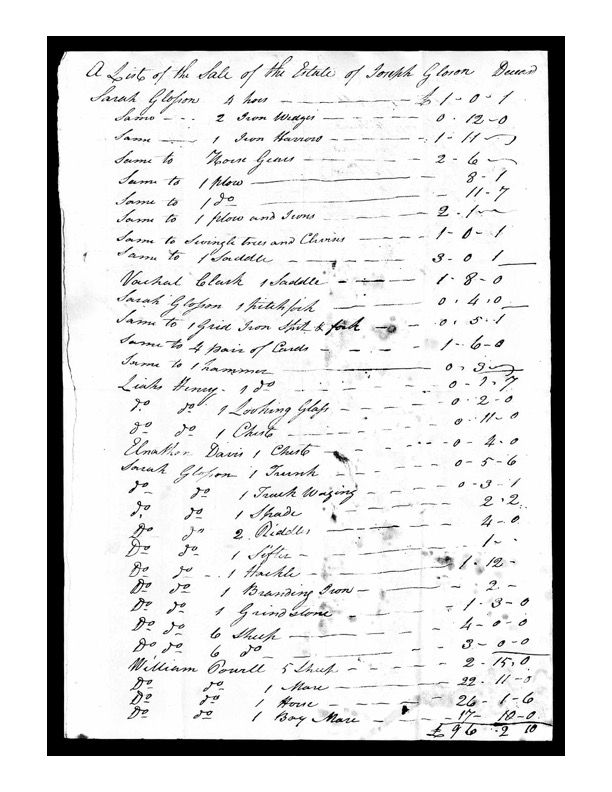 A List of the Sale of the Estate of Joseph Gloson Deceasd
Sarah Glosson 4 hoes £ 1-0-1
Same 2 Iron Wedges 0-12-0
Same 1 Iron Harrow 1-11
Same to Horse Gears 2-6
Same to 1 plow 8-1
Same to 1 do 11-7
Same to 1 plow and Irons 2-1
Same to Swingle trees and Clivins 1-0-1
Same to 1 Saddle 3-0 1
Vachal Clark 1 Saddle 1-8-0
Sarah Glosson 1 pitchfork 0-4-0
Same to 1 Grid Iron Spit & fork 0-5-1
Same to 4 pair of Cards 1-6-0
Same to 1 hammer 0-3
Henry 1 do 0-2-7
do do 1 Looking Glass 0-2-0
do do 1 Chest 0-11-0
Elnathan Davis 1 Chest 0-4-0
Sarah Glosson 1 Trunk 0-5-6
do do 1 Waging 0-3-1
do do 1 Spade 2-2
Do do 2 Riddles 4-0
Do do 1 Sifter 1--
Do do 1 Hackle 1-12-
Do do 1 Branding Iron 2-
Do do 1 Grindstone 1-3-0
Do do 6 Sheep 4-0-0
Do do 6 do 3-0-0
William Powell 5 Sheep 2-15-0
Do do 1 Mare 22-11-0
Do do 1 Horse 26-1-6
Do do 1 Bay Mare 17-10-0
£96-2 10